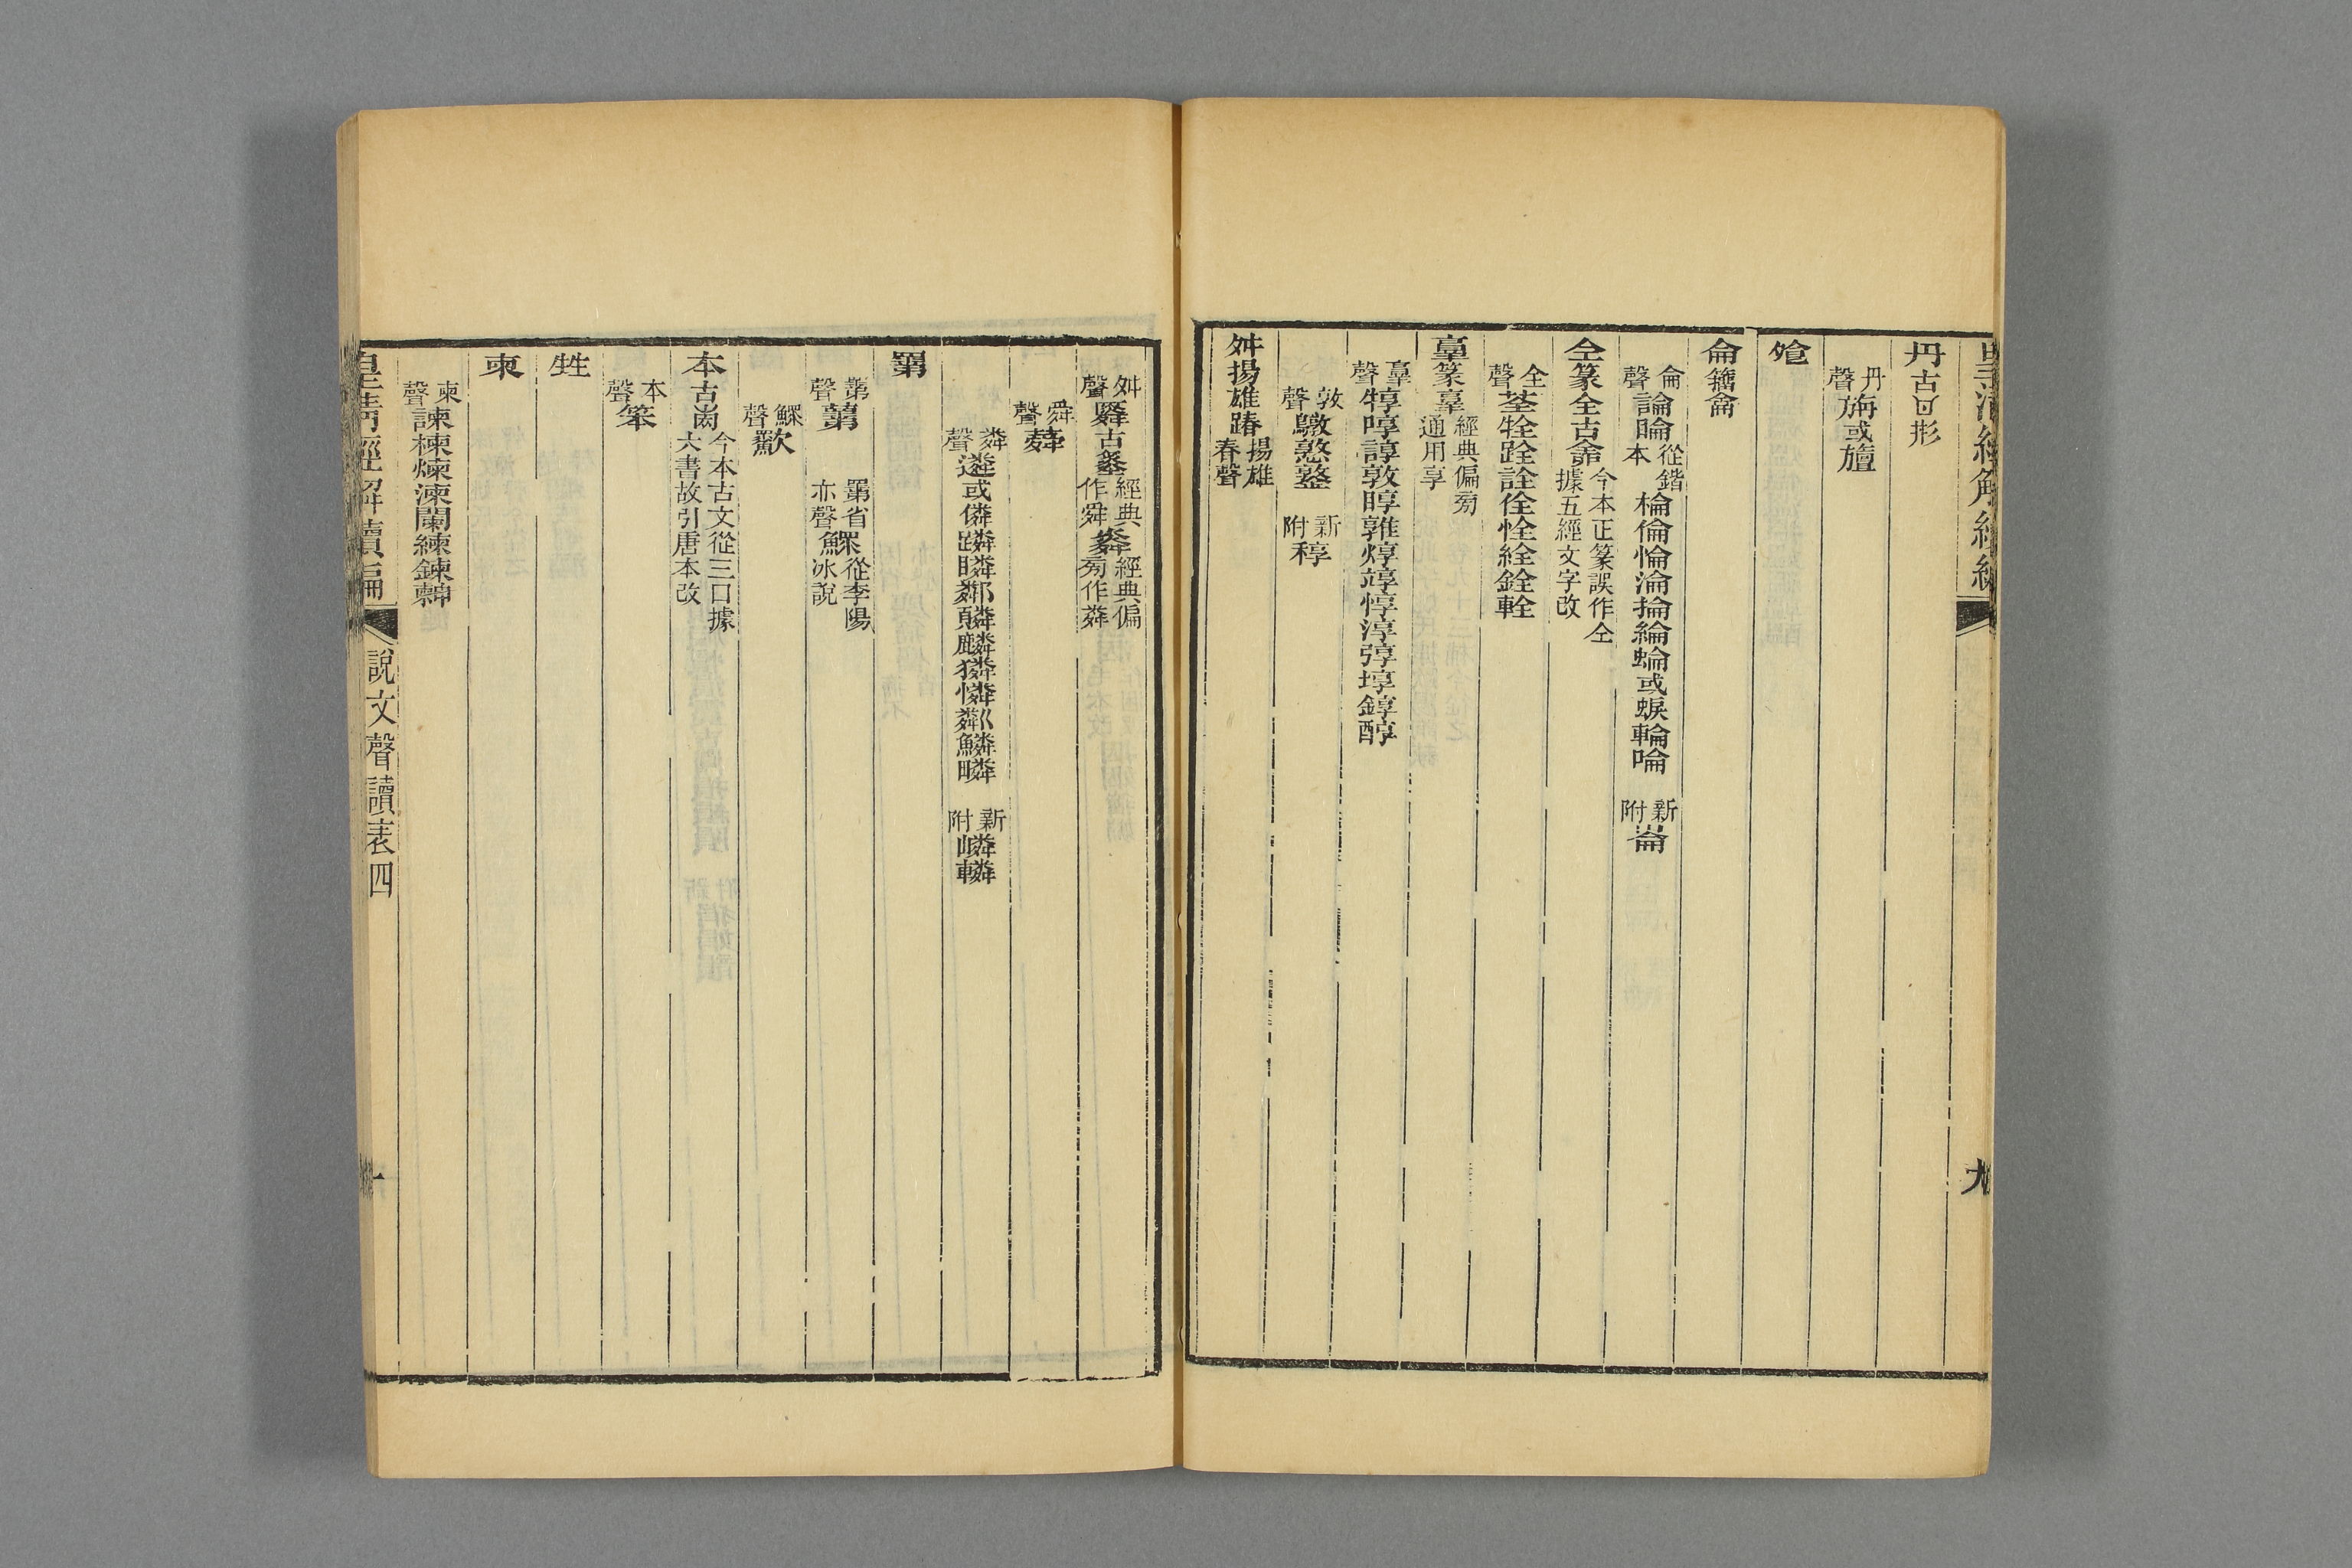 皇清經解續編
九
丹古𠁿彤
丹聲㫋或旜
飧
侖籀龠
侖聲論睔從鍇本棆倫惀淪掄綸蜦或蜧輪啍 新附崙
仝篆全古𠓴今本正篆誤作仝據五經文字改
全聲荃牷跧詮佺恮絟銓輇
𦎫篆𦎧經典偏旁通用享
𦎧聲犉啍諄敦䁃𩀜焞竴惇淳弴埻錞醇
敦聲鷻憝鐜 新附稕
舛揚雄踳揚雄春聲
舛聲舜古𡐩經典作舜䑞經典偏旁作粦
舜聲蕣
粦聲遴或僯蹸瞵鄰䫰麟獜憐粼鱗疄 新附嶙轔
𥄳
𥄳聲𦽅 𥄳省亦聲鰥從李陽冰說
鰥聲𣤦
本古𣎵今本古文從三口據六書故引唐本改
本聲笨
甡
柬
柬聲諫楝煉湅闌練鍊𣌾
皇清經解續編
說文聲讀表四
十